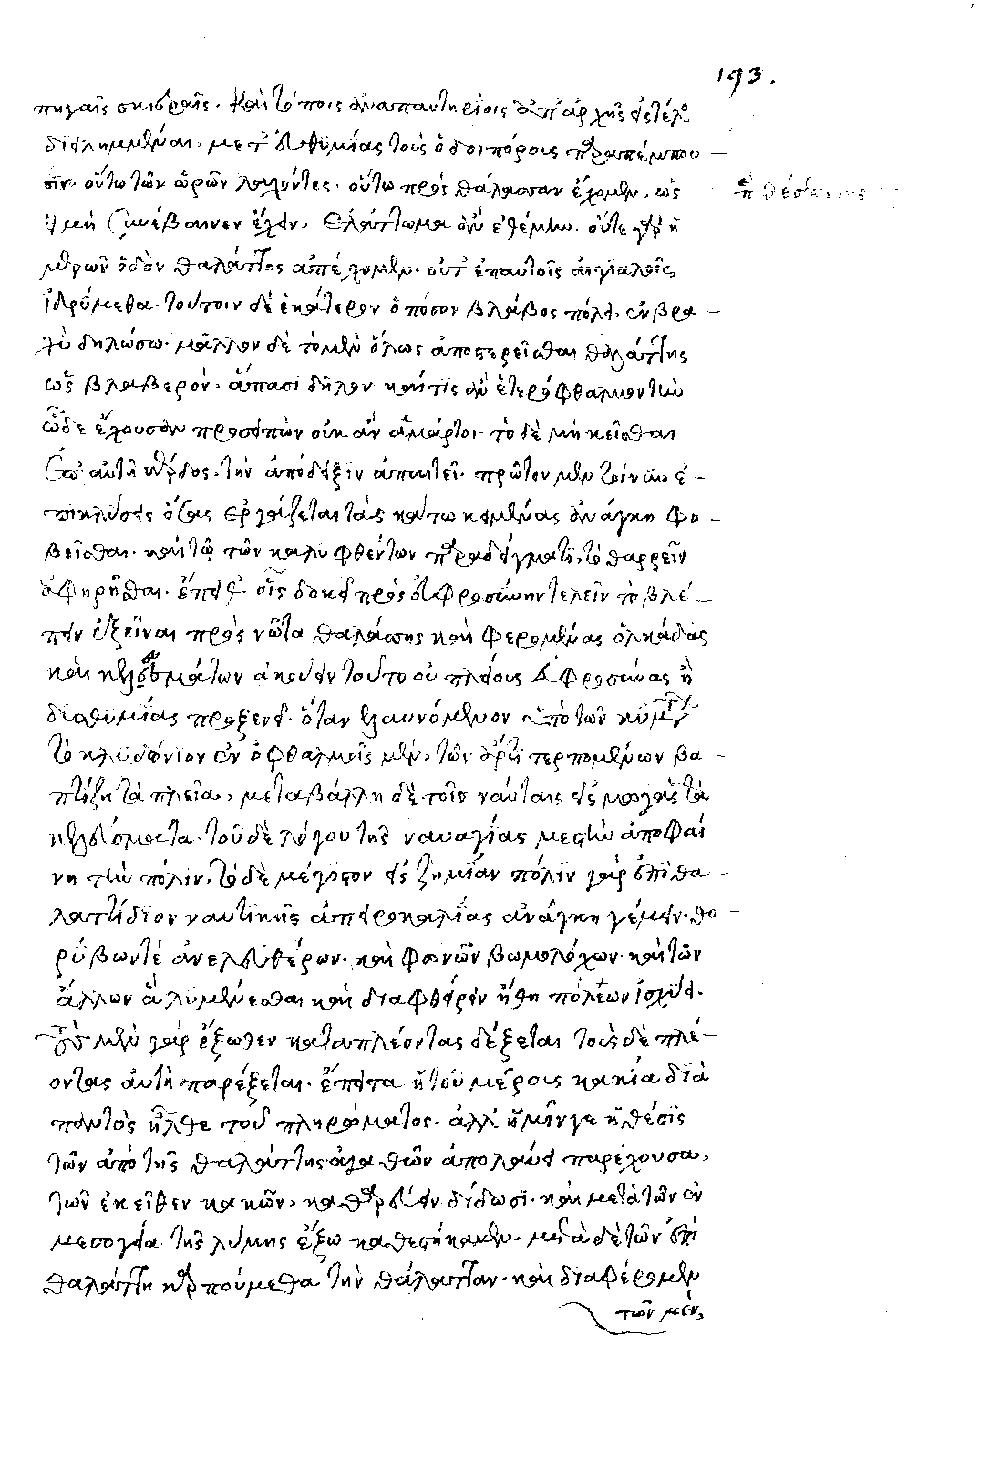 193.
πηγαῖς σκιεραῖς. καὶ τόποις ἀναπαυτηρίοις ἀπ' ἀρχῆς εἰς τέλος
διειλημμέναι. μετ' εὐθυμίας τοὺς ὁδοιπόρους παραπέμπου–
σιν. οὕτω τῶν ὡρῶν λαχόντες. οὕτω πρὸς θάλασσαν ἔχομεν, ὡς
εἰ μὴ συνέβαινεν ἔχειν, ἐλάττωμα ἂν ἐτίθεμεν. οὔτε γὰρ ἡ
μερῶν ὁδὸν θαλάττης ἀπέχομεν. οὔτ' ἐπ' αὐτοῖς αἰγιαλοῖς
ἱδρύμεθα. τούτοιν δὲ ἑκάτερον ὁπόσον βλάβος πόλει, ἐν βρα–
χεῖ δηλώσω. μᾶλλον δὲ τὸ μὲν ὅλως ἀποστερεῖσθαι θαλάττης
ὡς βλαβερὸν. ἅπασι δῆλον καί τις ἂν ἑτερόφθαλμον τὴν
ὧδε ἔχουσαν προσειπὼν οὐκ ἂν ἁμάρτοι. τὸ δὲ μὴ κεῖσθαι
ἐπ' αὐτῇ κέρδος. τὴν ἀπόδειξιν ἀπαιτεῖ. πρῶτον μὲν τοίνυν ἐ–
πικλύσεις ὅσας ἐργάζεται τὰς κάτω κειμένας ἀνάγκη φο–
βεῖσθαι. καὶ τῷ τῶν καλυφθέντων παραδείγματι, τὸ θαρρεῖν
ἀφῃρῆσθαι. ἔπειθ' οἷς δοκεῖ πρὸς εὐφροσύνην τελεῖν τὸ βλέ–
πειν ἐξεῖναι πρὸς νῶτα θαλάσσης καὶ φερομένας ὁλκάδας
καὶ κελευσμάτων ἀκούειν τοῦτο οὐ πλείους εὐφροσύνας ἢ
δυσθυμίας προξενεῖ. ὅταν ἐλαυνόμενον ὑπὸ τῶν κυμάτων
τὸ κλυδώνιον ἐν ὀφθαλμοῖς μὲν, τῶν ἄρτι τερπομένων βα–
πτίζῃ τὰ πλοῖα, μεταβάλλῃ δὲ τοῖς ναύταις εἰς οἰμωγὰς τὰ
κελεύσματα. τοῦ δὲ γόου τῆς ναυαγίας μεστὴν ἀποφαί
νῃ τὴν πόλιν, τὸ δὲ μέγιστον εἰς ζημίαν πόλιν γὰρ ἐπιθα–
λαττίδιον ναυτικῆς ἀπειροκαλίας ἀνάγκη γέμειν. θο–
ρύβων τὲ ἀνελευθέρων. καὶ φωνῶν βωμολόχων. καὶ τῶν
ἄλλων ἃ λυμαίνεσθαι καὶ διαφθείρειν ἤθη πόλεων ἰσχύει.
τοὺς μὲν γὰρ ἔξωθεν καταπλέοντας δέξεται τοὺς δὲ πλέ–
οντας αὐτὴ παρέξεται. ἔπειτα ἡ τοῦ μέρους κακία διὰ
παντὸς ἦλθε τοῦ πληρώματος. ἀλλ' ἥ μήν γε ἡ θέσις
τῶν ἀπὸ τῆς θαλάττης ἀγαθῶν ἀπολαύειν παρέχουσα,
τῶν ἐκεῖθεν κακῶν, καθαρεύειν δίδωσι. καὶ μετὰ τῶν ἐν
μεσογείᾳ τῆς λύμης ἔξω καθεστήκαμεν. μετὰ δὲ τῶν ἐπὶ
θαλάττῃ καρπούμεθα τὴν θάλατταν. καὶ διαφέρομεν
τῶν μὲν,